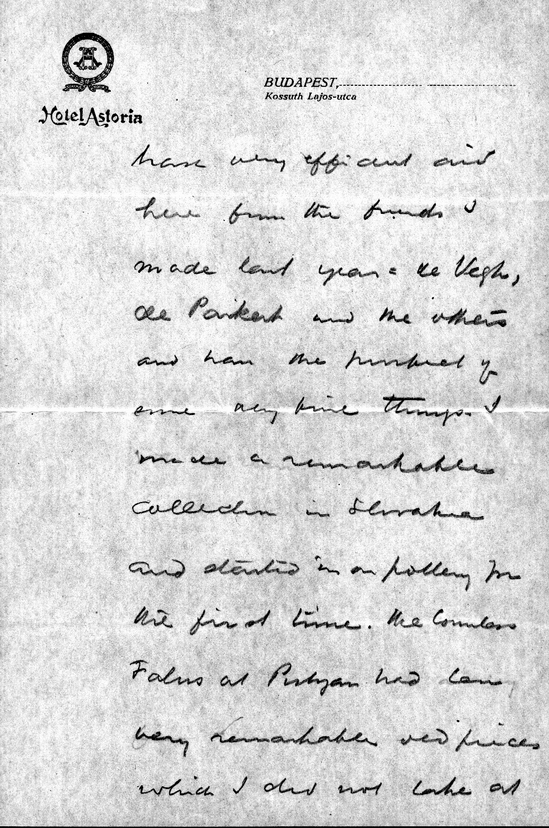 Hotel Astoria
BUDAPEST,
Kossuth Lajos-utca
have very efficient aid
here from the friends I
made last year = de Vegh,
de Pankert and the others
and have the prospect of
some very fine things. I
made a remarkable
collection in Slovakia
and started in on pottery for
the first time. The Countess
at had
very remarkable old pieces
which I did not take at